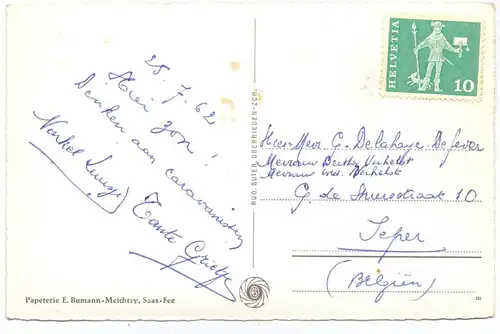 25.7.62
Hier zon!
Denken aan caravanisten
Nonkel
Tante
Papeterie E. Bumann-Meichtry, Saas-Fee
RUD. SUTER, OBERRIEDEN-ZCH.
HELVETIA
10
Heer-Mevr. G. Delahaye-Defever
Mevrouw Bertha Verhelst
Mevrouw Verhelst
G de Stuersstraat 10
Ieper
(Belgiën)
m